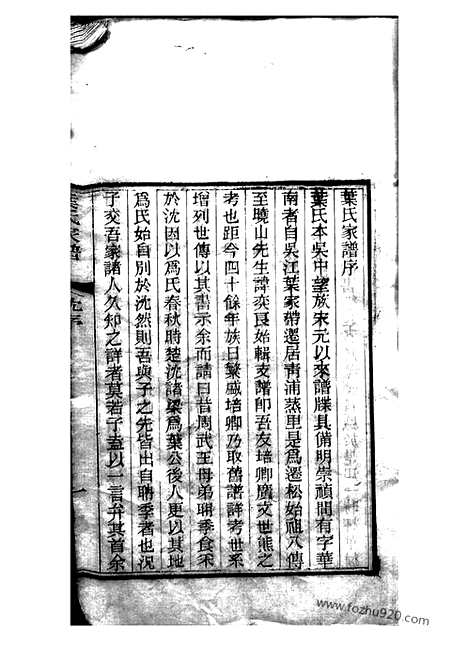 葉氏家譜序
葉氏本吳中望族宋元以來譜牒具備明崇禎間有字華
南者自吳江葉家帶遷居青浦蒸里是爲遷松始祖八傳
至曉山先生諱奕良始輯支譜卽吾友培卿廣文世熊之
考也距今四十餘年族日繁戚培卿乃取舊譜詳考世系
增列世傳以其書示余而請曰昔周武王母弟聃季食采
於沈因以爲氏春秋時楚沈諸梁爲葉公後人更以其地
爲氏始自別於沈然則吾與子之先皆出自聃季者也況
子交吾家諸人久知之詳者莫若子盍以一言弁其首余
葉氏家譜
一
www.fozhu920.com